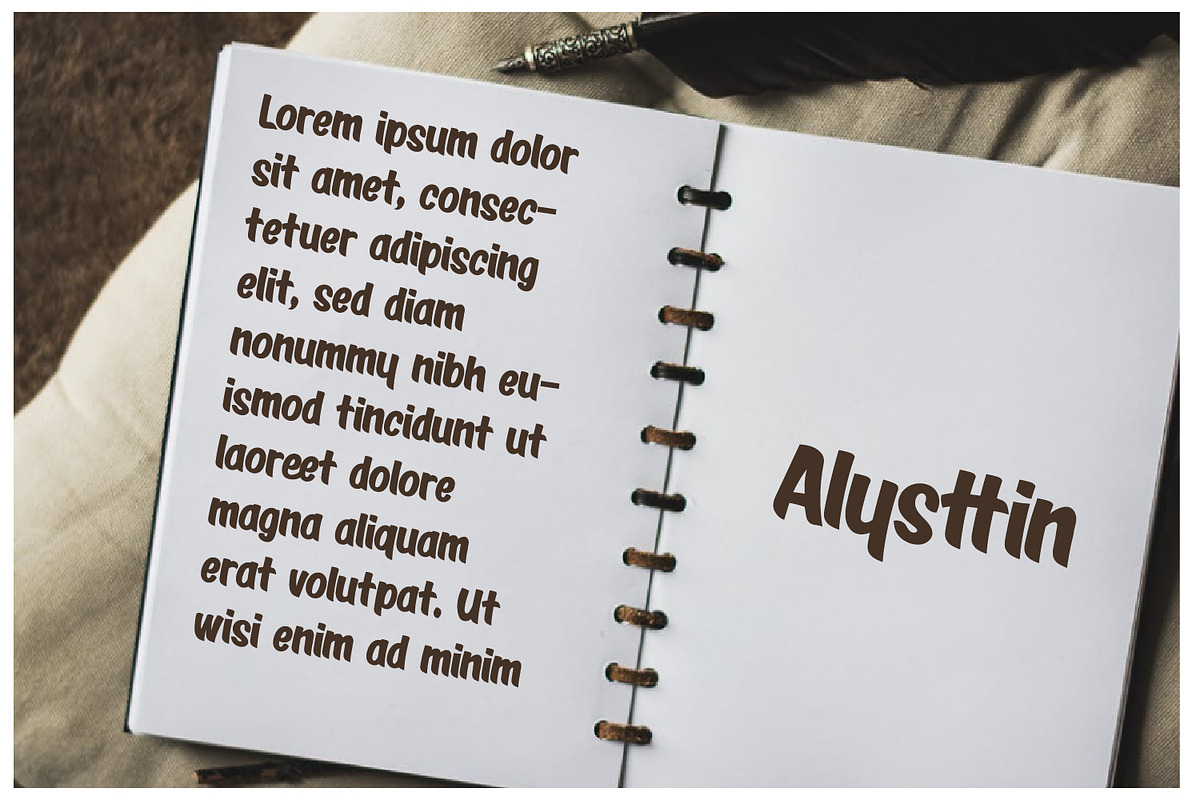 Lorem ipsum dolor
sit amet, consec-
tetuer adipiscing
elit, sed diam
nonummy nibh eu-
ismod tincidunt ut
laoreet dolore
magna aliquam
erat volutpat. Ut
wisi enim ad minim
Alysttin